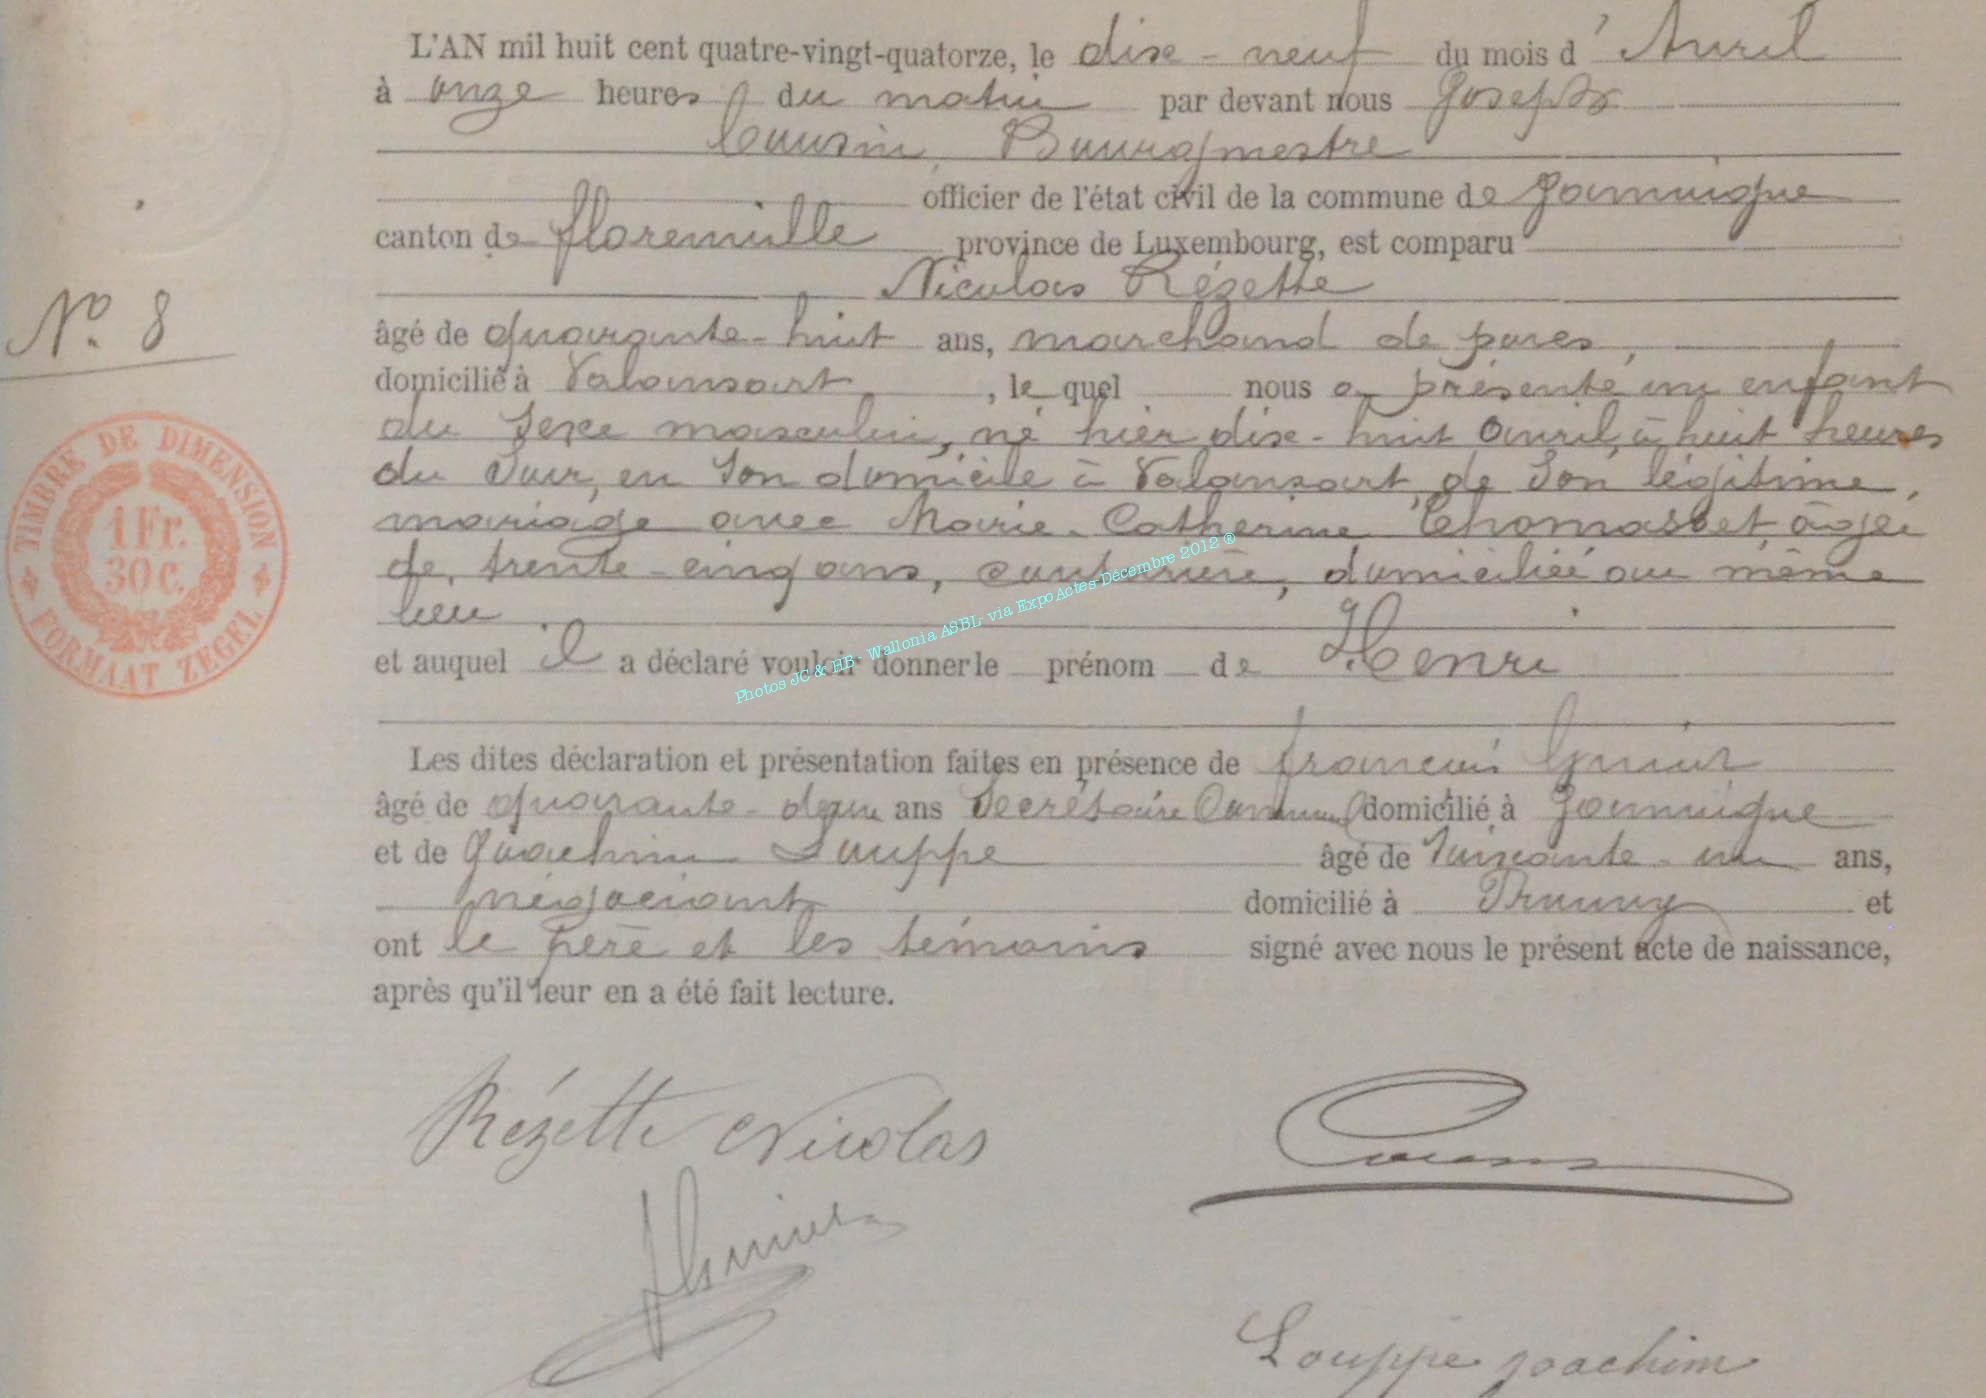 L'AN mil huit cent quatre-vingt-quatorze, le dixe-neuf du mois d'Avril
à onze heures du matin par devant nous Joseph
Cousin, Bourgmestre
officier de l'état civil de la commune de Jamoigne
canton de florenville province de Luxembourg, est comparu
Nicolas Rézette
N° 8
âgé de quarante-huit ans, marchand de porcs,
domicilié à Valansart, le quel nous a présenté un enfant
du Sexe masculin, né hier dixe-huit avril, à huit heures
du Soir, en Son domicile à Valansart, de Son légitime
mariage avec Marie-Catherine Thomasset, âgée
de trente-cinq ans, couturière, domiciliée au même
lieu
et auquel il a déclaré vouloir donner le prénom de Henri
TIMBRE DE DIMENSION
1 Fr.
30 C.
FORMAAT ZEGEL
Photos JC & HB - Wallonia ASBL via ExpoActes Décembre 2012 ®
Les dites déclaration et présentation faites en présence de françois
âgé de quarante-deux ans Secrétaire Communal domicilié à Jamoigne
et de Joachim Louppe âgé de Soixante-un ans,
négociant domicilié à Prouvy et
ont le père et les témoins signé avec nous le présent acte de naissance,
après qu'il leur en a été fait lecture.
Rézette Nicolas
Cousin
Louppe Joachim